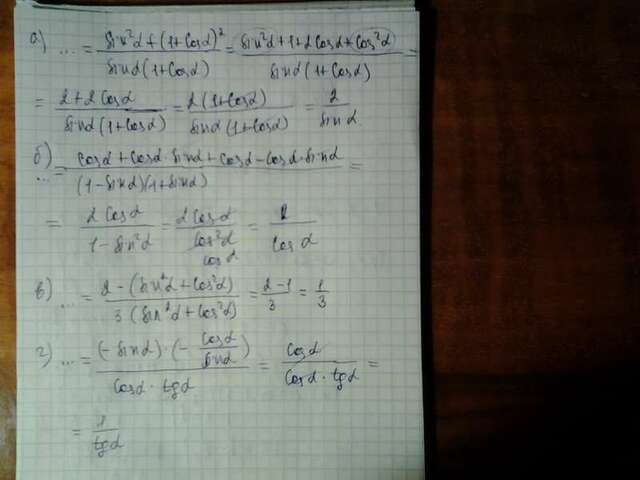 а) ... = sin²α + (1+cosα)² / sinα(1+cosα) = sin²α + 1 + 2cosα + cos²α / sinα(1+cosα) =
= 2+2cosα / sinα(1+cosα) = 2(1+cosα) / sinα(1+cosα) = 2 / sinα
б) ... = cosα + cosα·sinα + cosα - cosα·sinα / (1-sinα)(1+sinα) =
= 2cosα / 1-sin²α = 2cosα / cos²α cosα = 2 / cosα
в) ... = 2-(sin²α+cos²α) / 3(sin²α+cos²α) = 2-1 / 3 = 1 / 3
г) ... = (-sinα)·(-cosα/sinα) / cosα·tgα = cosα / cosα·tgα =
= 1 / tgα